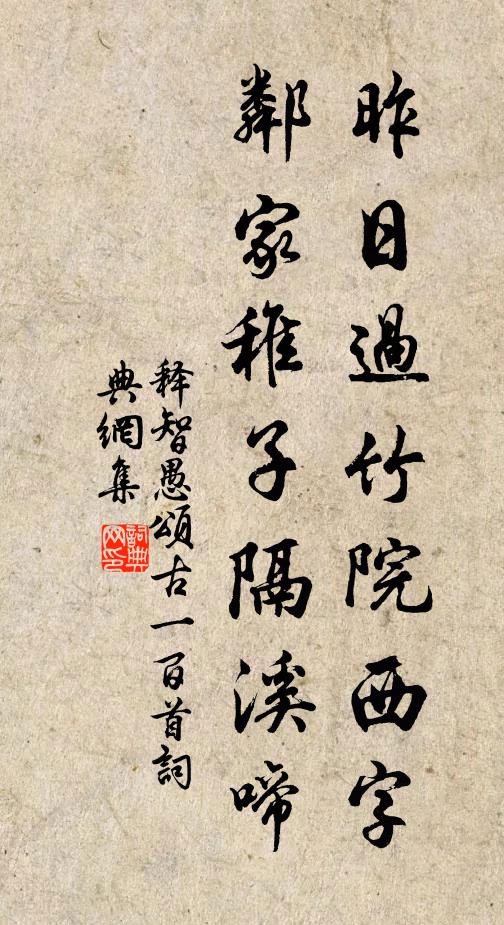 昨日過竹院西字
鄰家稚子隔溪啼
释智愚頌古一百首詞
典網集
詞典
网印